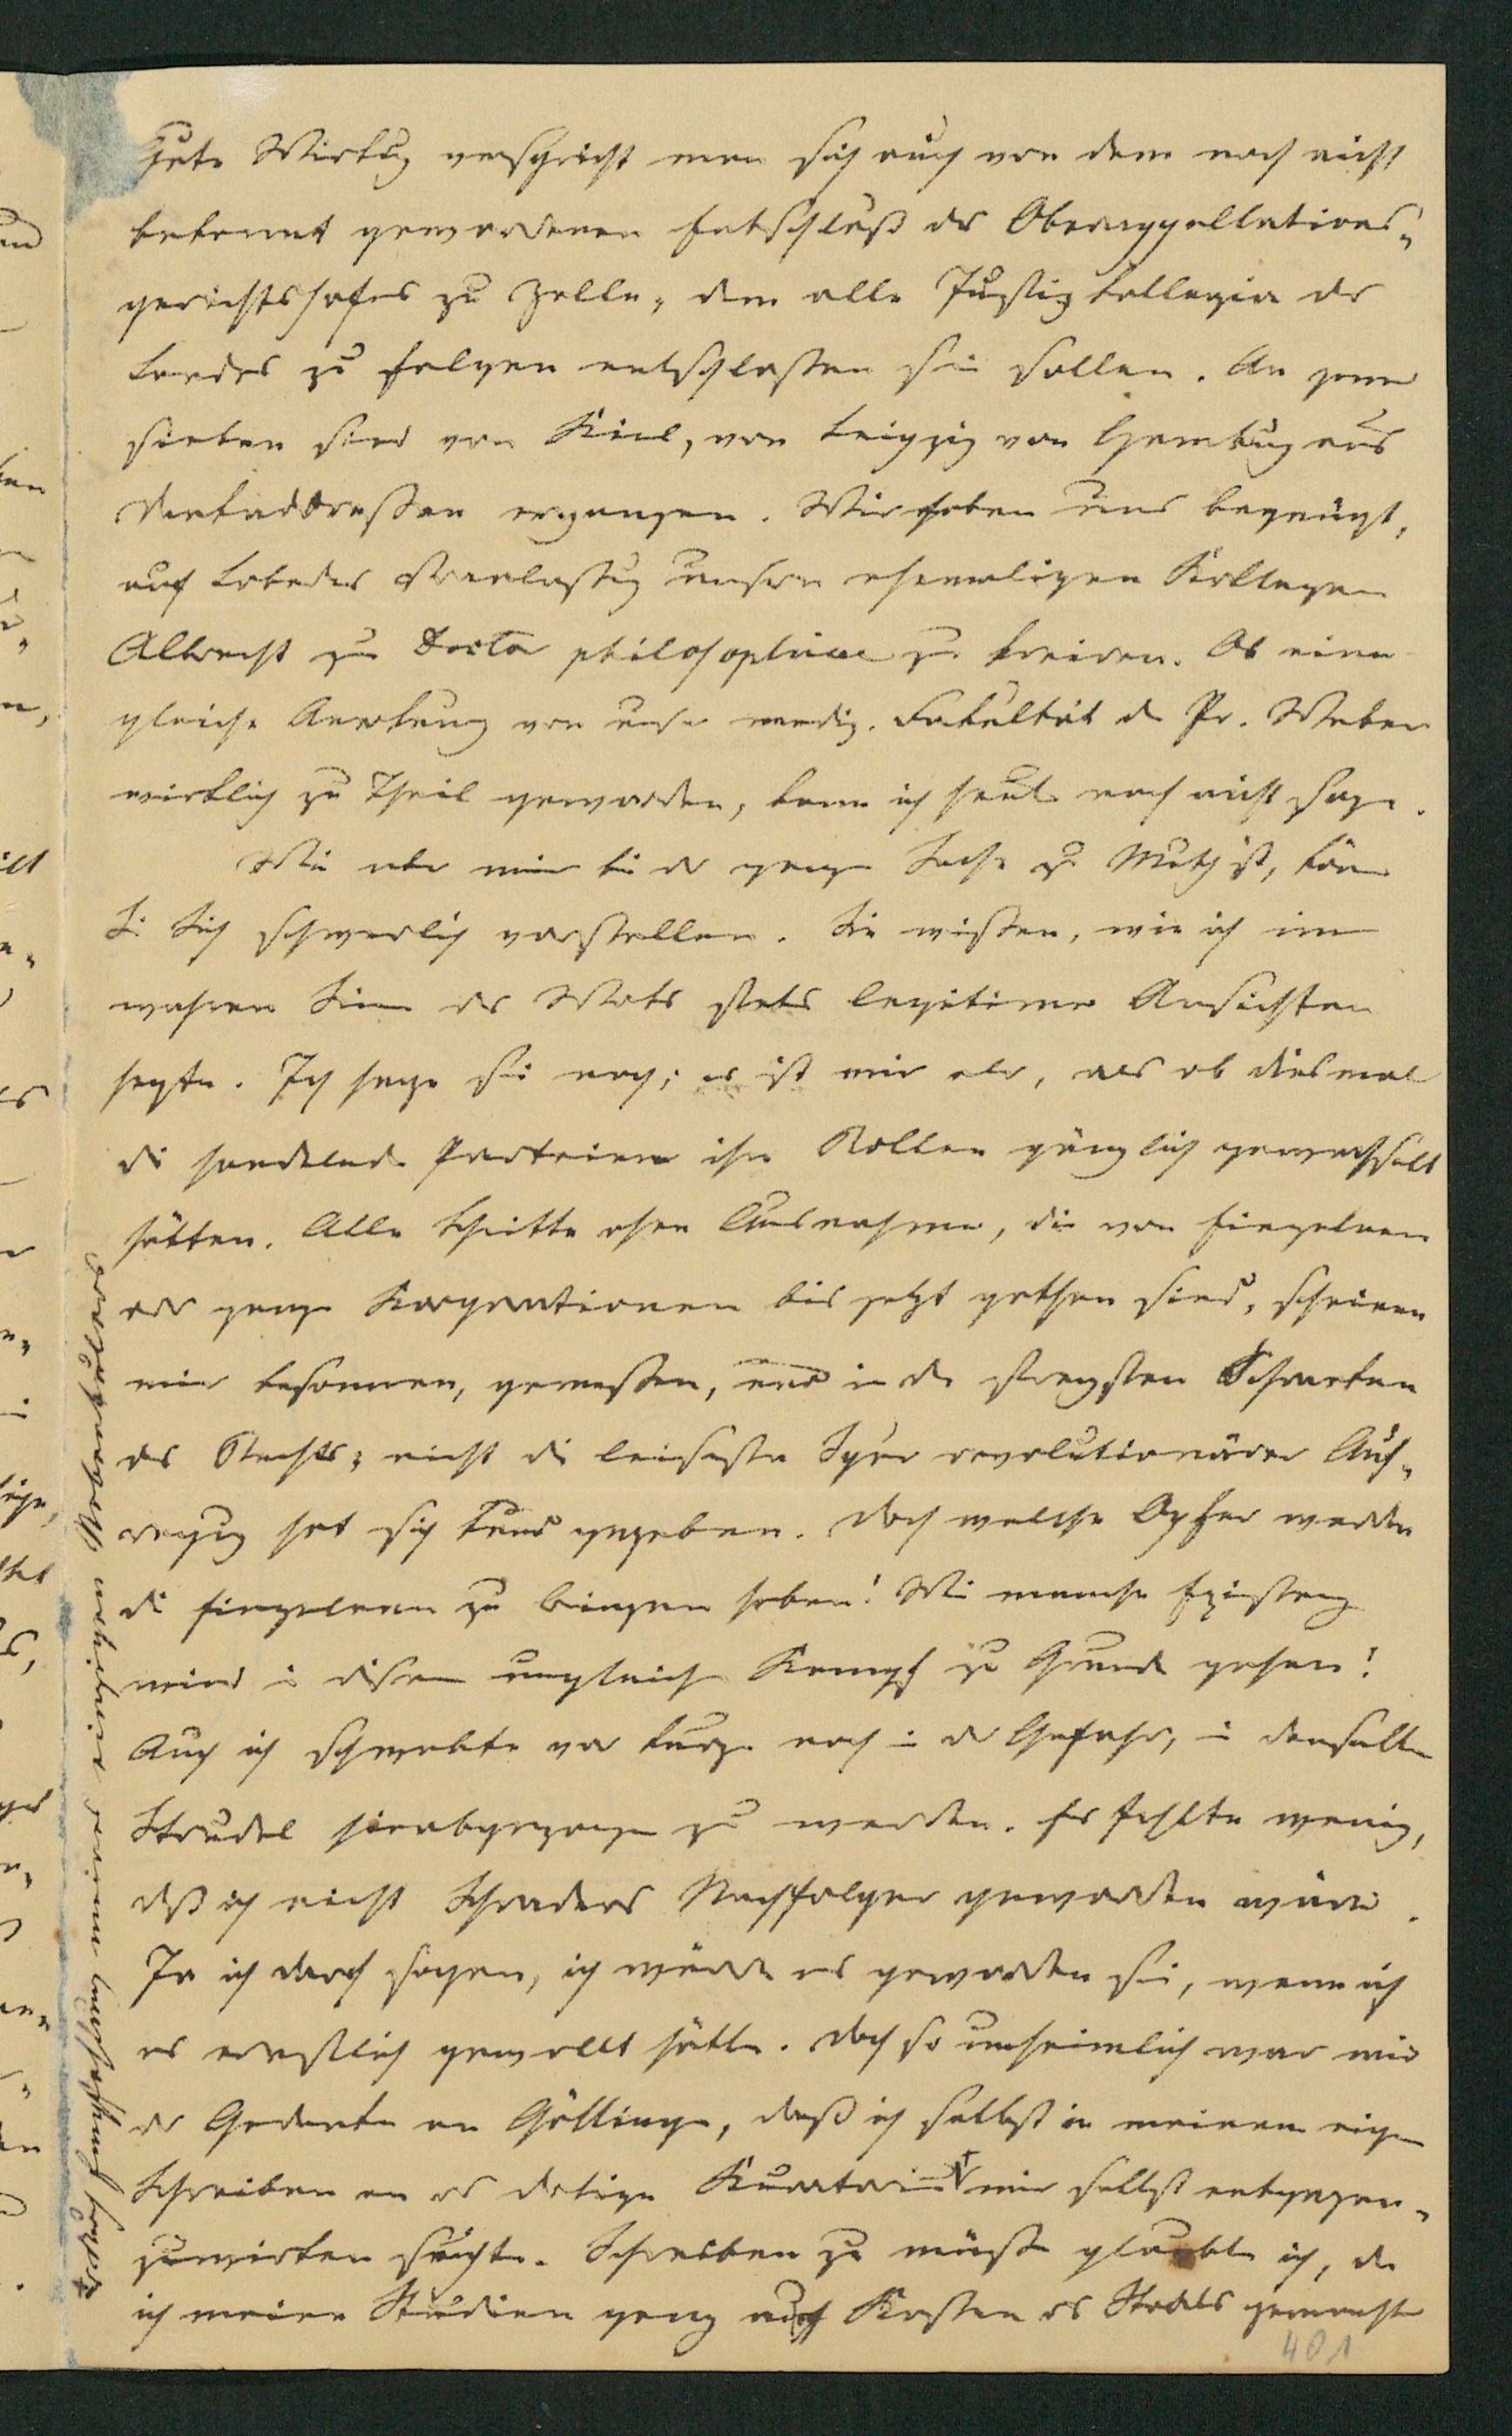 Gute Wirkung verspricht man sich auch von dem noch nicht
bekannt gewordenen Entschluß des Oberappellations-
gerichtshofes zu Zelle, dem alle Justizkollegia des
Landes zu folgen entschlossen sein sollen. An jene
sieben sind von Kiel, von Leipzig von Hamburg aus
Dankaddressen ergangen. Wir haben uns begnügt,
auf Lobecks Veranlassung unsern ehemaligen Kollegen
Albrecht zum Doctor philosophiae zu kreiren. Ob eine
gleiche Anerkennung von unsrer medizin. Fakultät dem Pr. Weber
wirklich zu Theil geworden, kann ich heute noch nicht sagen.
Wie aber mir bei der ganzen Sache zu Muth ist, können
Sie Sich schwerlich vorstellen. Sie wissen, wie ich im
wahren Sinn des Worts stets legitime Ansichten
hegte. Ich hege sie noch; es ist mir aber, als ob diesmal
die handelnden Parteien ihre Rollen gänzlich gewechselt
hätten. Alle Schritte ohne Ausnahme, die von Einzelnen
oder ganzen Korporationen bis jetzt gethan sind, scheinen
mir besonnen, gemessen, und in den strengsten Schranken
des Rechts; nicht die leiseste Spur revolutionärer Auf-
regung hat sich kund gegeben. Doch welche Opfer werden
die Einzelnen zu bringen haben! Wie manche Existenz
wird in diesem ungleichen Kampf zu Grunde gehen!
Auch ich schwebte vor kurzem noch in der Gefahr, in denselben
Strudel hinabgezogen zu werden. Es fehlte wenig,
daß ich nicht Schraders Nachfolger geworden wäre.
Ja ich darf sagen, ich würde es geworden sein, wenn ich
es ernstlich gewollt hätte. Doch so unheimlich war mir
der Gedanke an Göttingen, daß ich selbst in meinem eignen
Schreiben an das dortige Kuratorium mir selbst entgegen-
zuwirken suchte. Schreiben zu müssen glaubte ich, da
ich meine Studien ganz auf Kosten des Staats gemacht
401